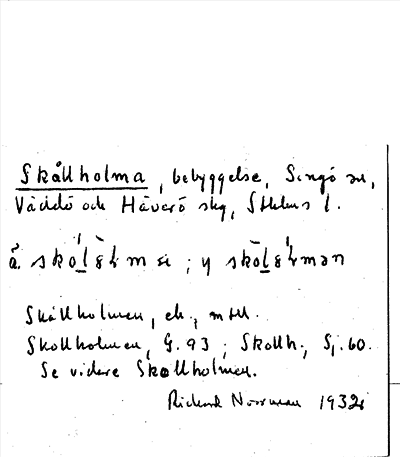 Skållholma, bebyggelse, Singö sn,
Väddö och Häverö skg, Sthlms l.
Skållholmen, ek., mtll.
Skollholmen, G. 93; Skollh., Sj. 60.
Se vidare Skollholmen.
Rickard Norrman 1932